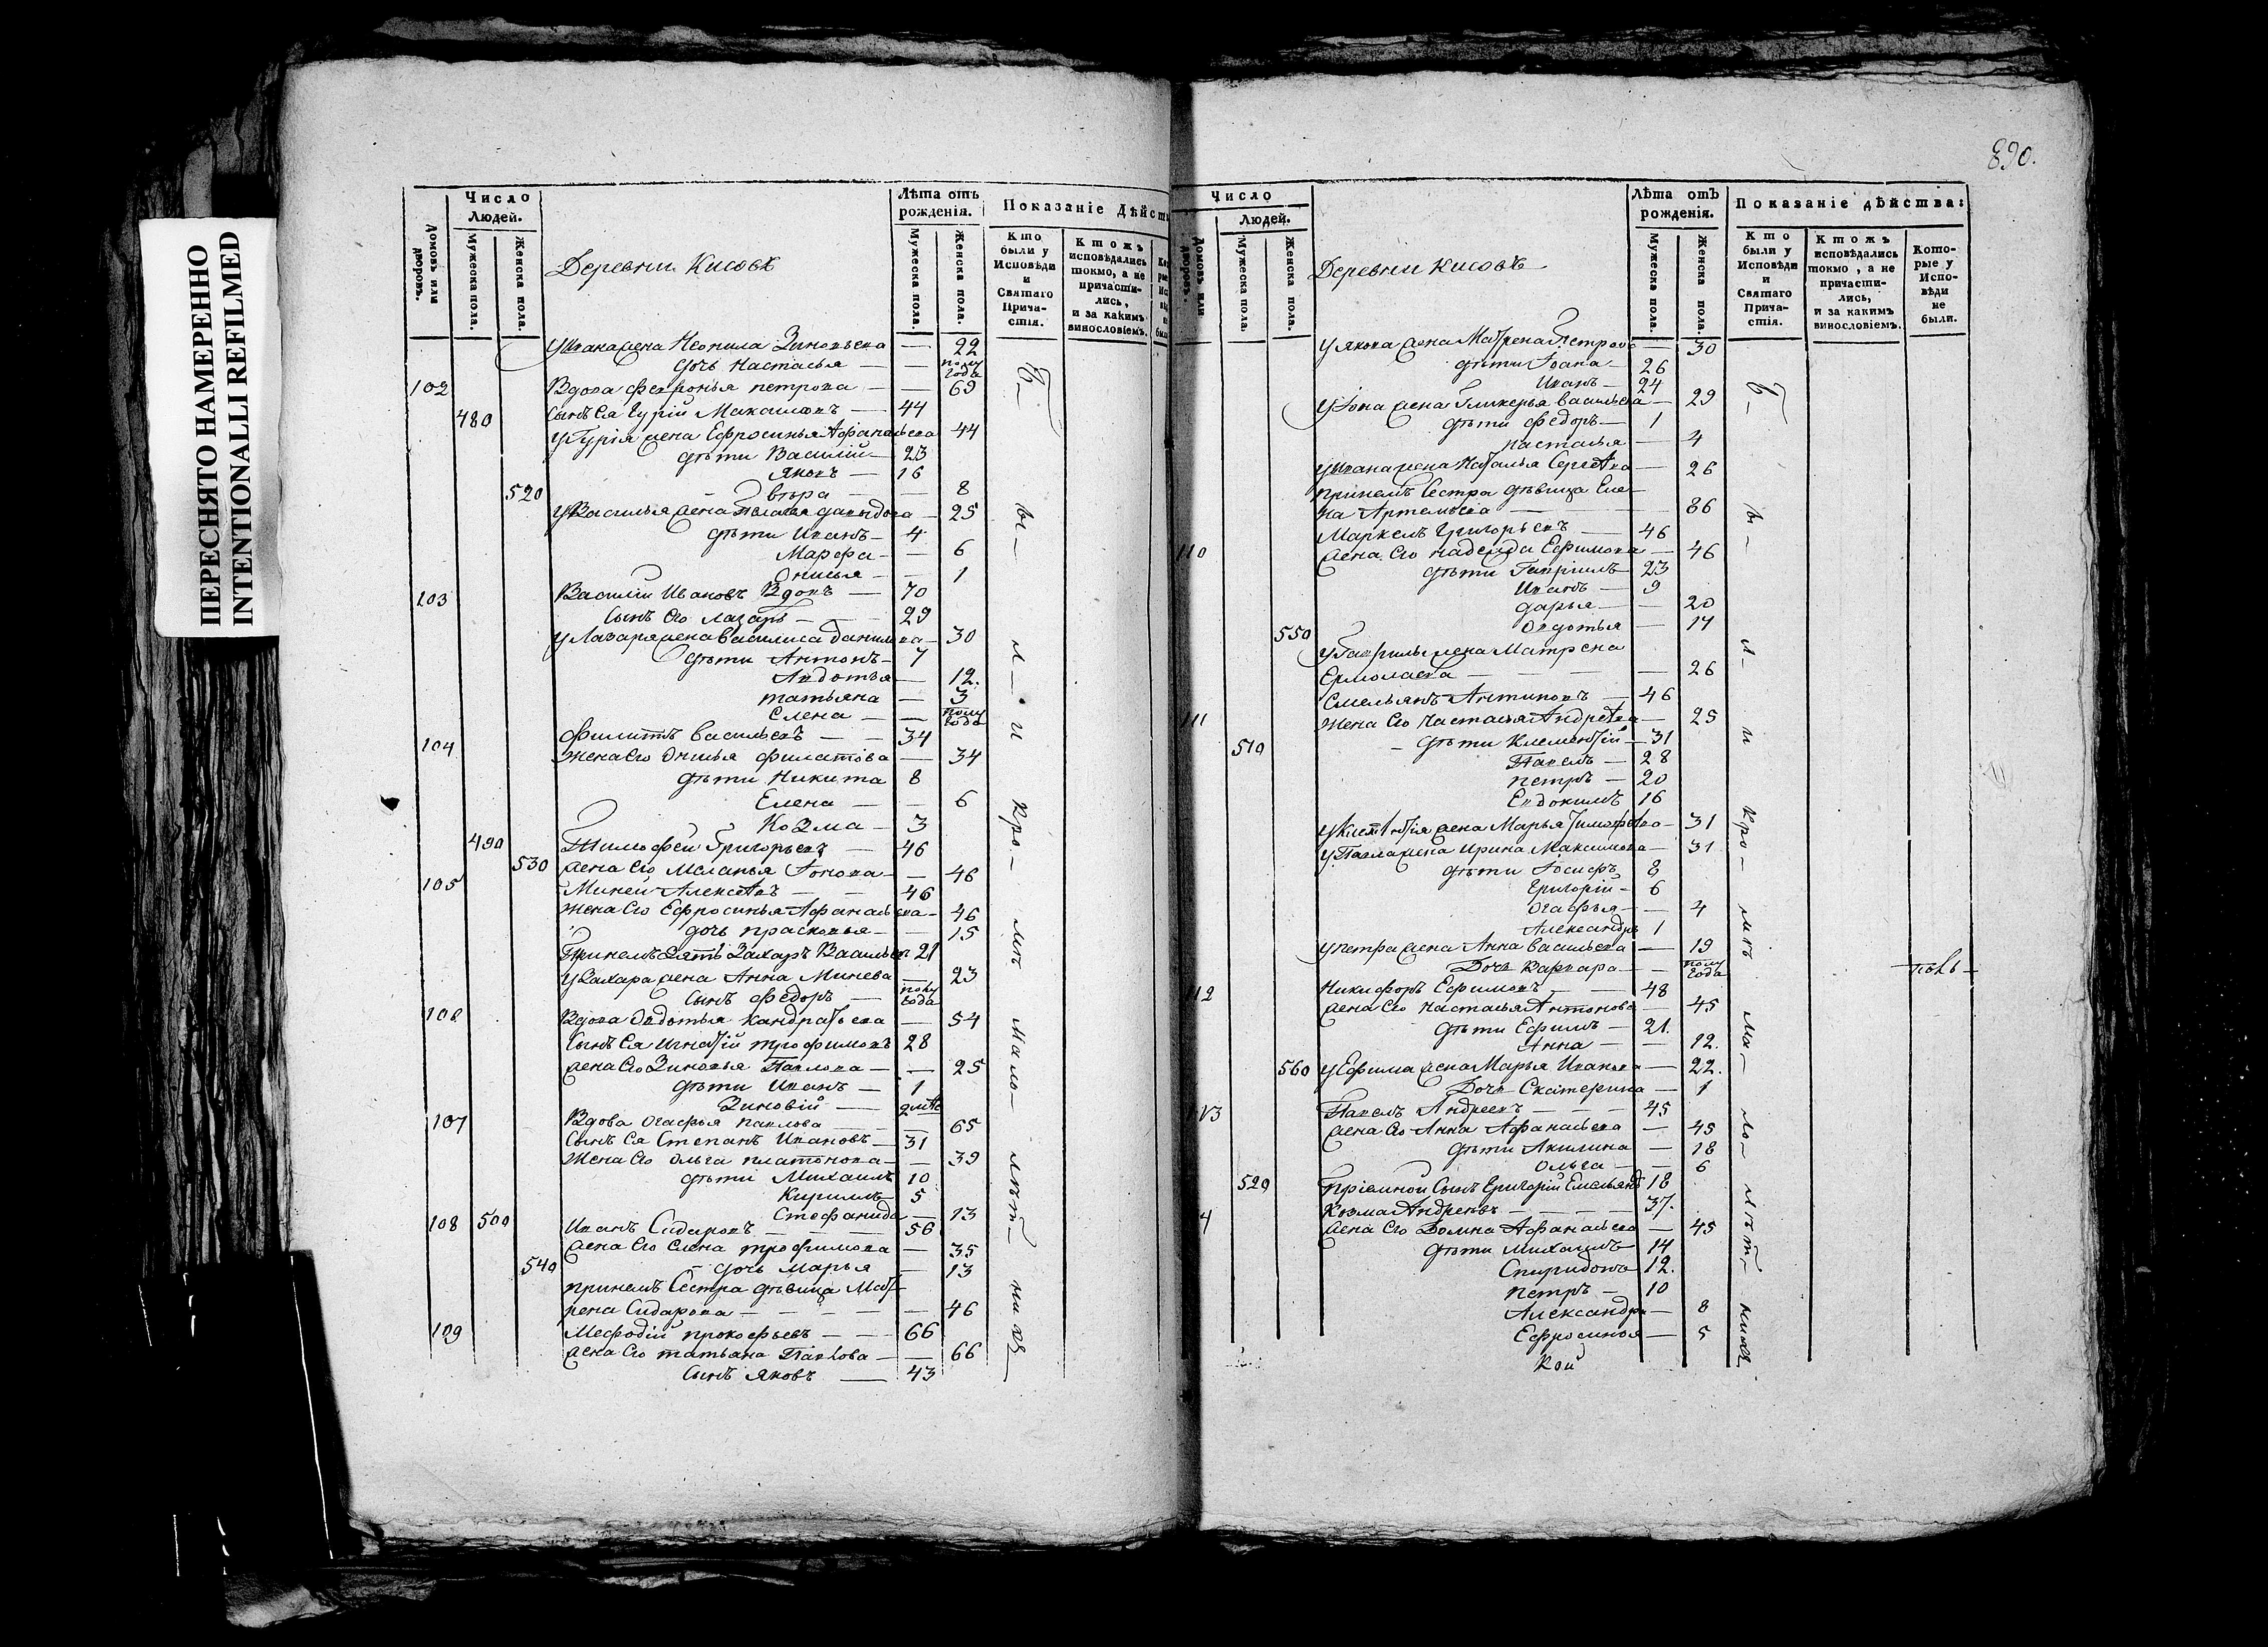 ПЕРЕСНЯТО НАМЕРЕННО
INTENTIONALLI REFILMED
Число
Людей.
Домовъ или дворовъ.
Мужеска пола.
Женска пола.
Деревни Кисовъ
Лѣта отъ рожденія.
Мужеска пола.
Женска пола.
Показаніе Дѣйств
Кто были у Исповѣди и Святаго Прича-стія.
Ктожъ исповѣдались токмо, а не причасти-лись, и за какимъ винословіемъ.
У Ивана жена Неонила Зиновьева — 22
дочь Настасья — полу года
102 Вдова Февронья петрова — 69
480 Сынъ Ея Гурій Максимовъ — 44
У Гурія жена Ефросинья Афанасьева 44
дѣти Василий — 23
Яковъ — 16
520 Вѣра — 8
У Василья жена Пелагея давыдова — 25
дѣти Иванъ — 4
Марфа — 6
Онисья — 1
103 Василій Ивановъ Вдовъ — 70
Сынъ Его Лазарь — 29
У Лазаря жена Василиса данилова — 30
дѣти Антонъ — 7
Авдотья — 12.
татьяна — 3
Елена — полу года
104 Филиппъ Васильевъ — 34
Жена Его Онисья филатова — 34
дѣти Никита 8
Елена — 6
Козма — 3
490 Тимофей Григорьевъ — 46
530 жена Его Меланья Іонова — 46
105 Миней Алексѣевъ — 46
Жена Его Ефросинья Афанасьева — 46
дочь прасковья — 15
Принемъ Зять Захаръ Васильев 21
У Захара жена Анна Минева — 23
Сынъ Федоръ — полу года
106 Вдова Овдотья Кандратьева — 54
Сынъ Ея Игнатій трофимовъ 28
жена Его Зиновья Павлова — 25
дѣти Иванъ — 1
Зиновій —
107 Вдова Огафья павлова 65
Сынъ Ея Степанъ Ивановъ — 31
Жена Его Ольга платонова — 39
дѣти Михаилъ 10
Кирилъ — 5
Стефанида — 13
108 500 Иванъ Сидаровъ — 56
жена Его Елена трофимова — 35
540 дочь Марья — 13
принемъ Сестра дѣвица Мат-
рена Сидарова — 46
109 Мефодій прокофьевъ — 66
жена Его татьяна Павлова — 66
Сынъ Яковъ — 43
Бы-
ли
Кро-
мѣ
Мало-
лѣт-
нихъ
890.
Число
Людей.
Домовъ или дворовъ.
Мужеска пола.
Женска пола.
Деревни Кисовъ
Лѣта отъ рожденія.
Мужеска пола.
Женска пола.
Показаніе дѣйства:
Кто были у Исповѣди и Святаго Прича-стія.
Ктожъ исповѣдались токмо, а не причасти-лись, и за какимъ винословіемъ.
Кото-рые у Испо-вѣди не были.
У Якова жена Матрена Петрова — 30
дѣти Іона — 26
Иванъ — 24
У Іона жена Гликерья Васильева — 29
дѣти Федоръ — 1
настасья — 4
У Ивана жена Наталья Сергеева — 26
принемъ Сестра дѣвица Еле-
на Артемьева — 86
110 Маркелъ Григорьевъ — 46
жена Его надежда Ефимова — 46
дѣти Гавріилъ 23
Иванъ — 9
дарья — 20
550 Овдотья — 14
У Гаврилы жена Матрена
Ермолаева — 26
111 Емельянъ Антиповъ — 46
Жена Его Настасья Андреева — 25
510 дѣти Клементій — 31
Павелъ — 28
петръ — 20
Евдокимъ 16
У Клементія жена Марья Тимофеева — 31
У Павла жена Ирина Максимова — 31
дѣти Іосифъ 8
Григорій — 6
Огафья — 4
Александръ 1
У петра жена Анна Васильева — 19
Дочь Варвара — полу года
112 Никифоръ Ефимовъ — 48
жена Его Настасья Антонова — 45
дѣти Ефимъ — 21.
Анна — 12.
560 У Ефима жена Марья Иванова — 22.
Дочь Екатерина — 1
113 Павелъ Андреевъ — 45
жена Его Анна Афанасьева — 45
дѣти Акилина — 18
Ольга — 6
520 пріемной Сынъ Григорій Емельянов 18
4 Козма Андреевъ — 37.
жена Его Домна Афанасьева — 45
дѣти Михаилъ 14
Спиридонъ 12.
петръ — 10
Александра — 8
Ефросинья — 5
Кой
Бы-
ли
Кро-
мѣ
Ма-
ло-
лѣт-
нихъ